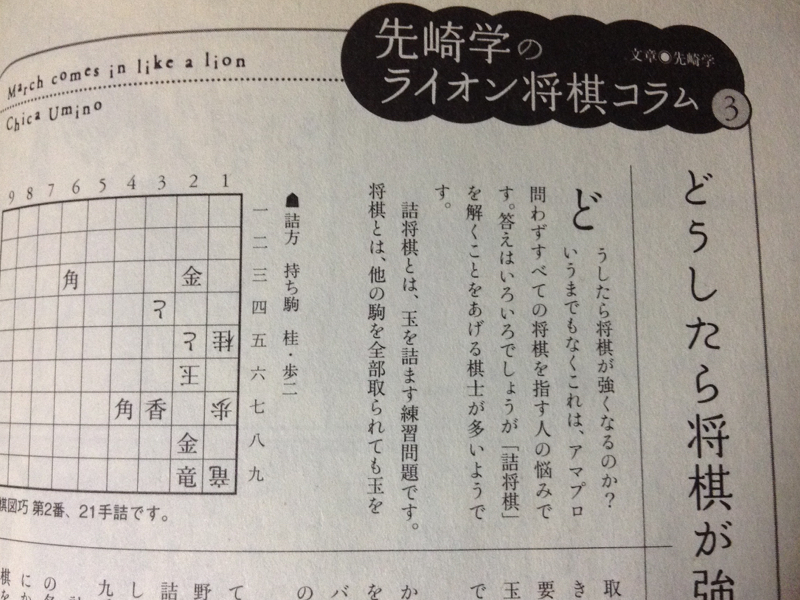 March comes in like a lion
Chica Umino
先崎学の
ライオン将棋コラム
3
文章◉先崎学
どうしたら将棋が強
どうしたら将棋が強くなるのか?
いうまでもなくこれは、アマプロ
問わずすべての将棋を指す人の悩みで
す。答えはいろいろでしょうが「詰将棋」
を解くことをあげる棋士が多いようで
す。
詰将棋とは、玉を詰ます練習問題です。
将棋とは、他の駒を全部取られても玉を
詰方 持ち駒 桂・歩二
9 8 7 6 5 4 3 2 1
一 二 三 四 五 六 七 八 九
角 金
と
と 桂
玉
角 香 歩
金
竜 竜
棋図巧 第2番、21手詰です。
取
き
要
玉
で
か
を
バ
の
て
野
詰
し
九
の
に
棋